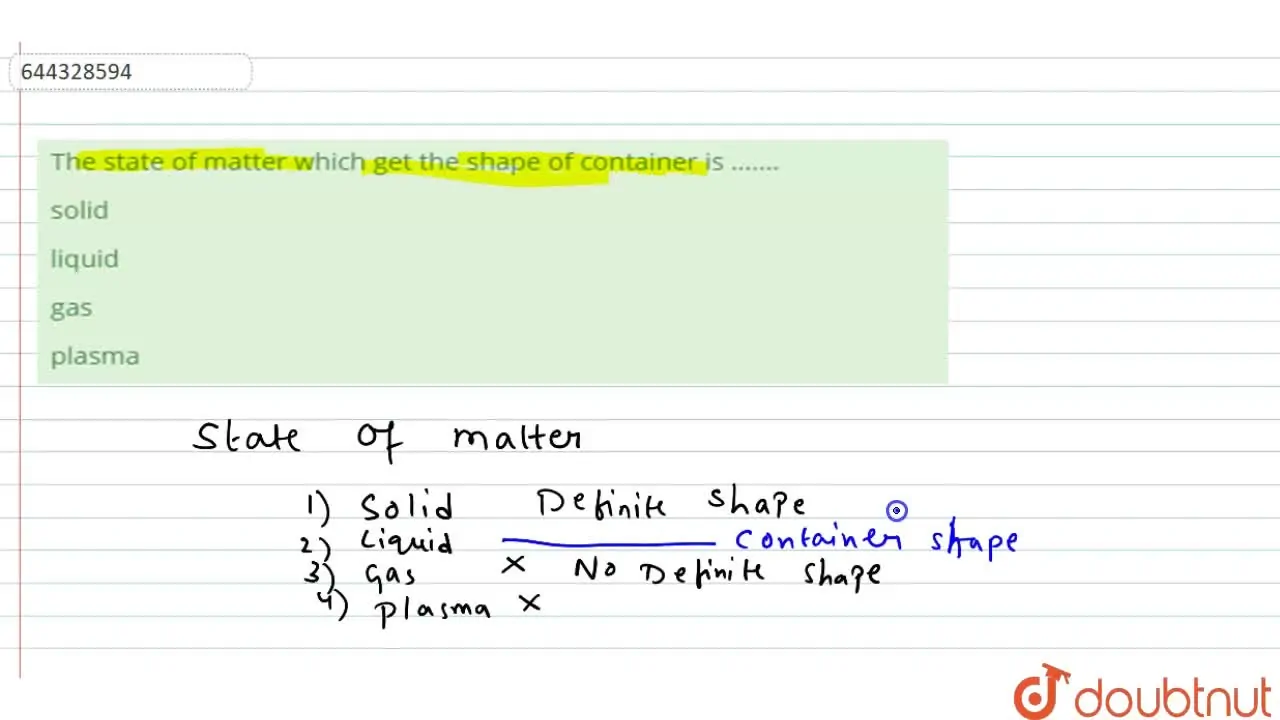 644328594
The state of matter which get the shape of container is .......
solid
liquid
gas
plasma
State of matter
1) Solid Definite shape
2) Liquid container shape
3) Gas × No Definite shape
4) plasma ×
doubtnut